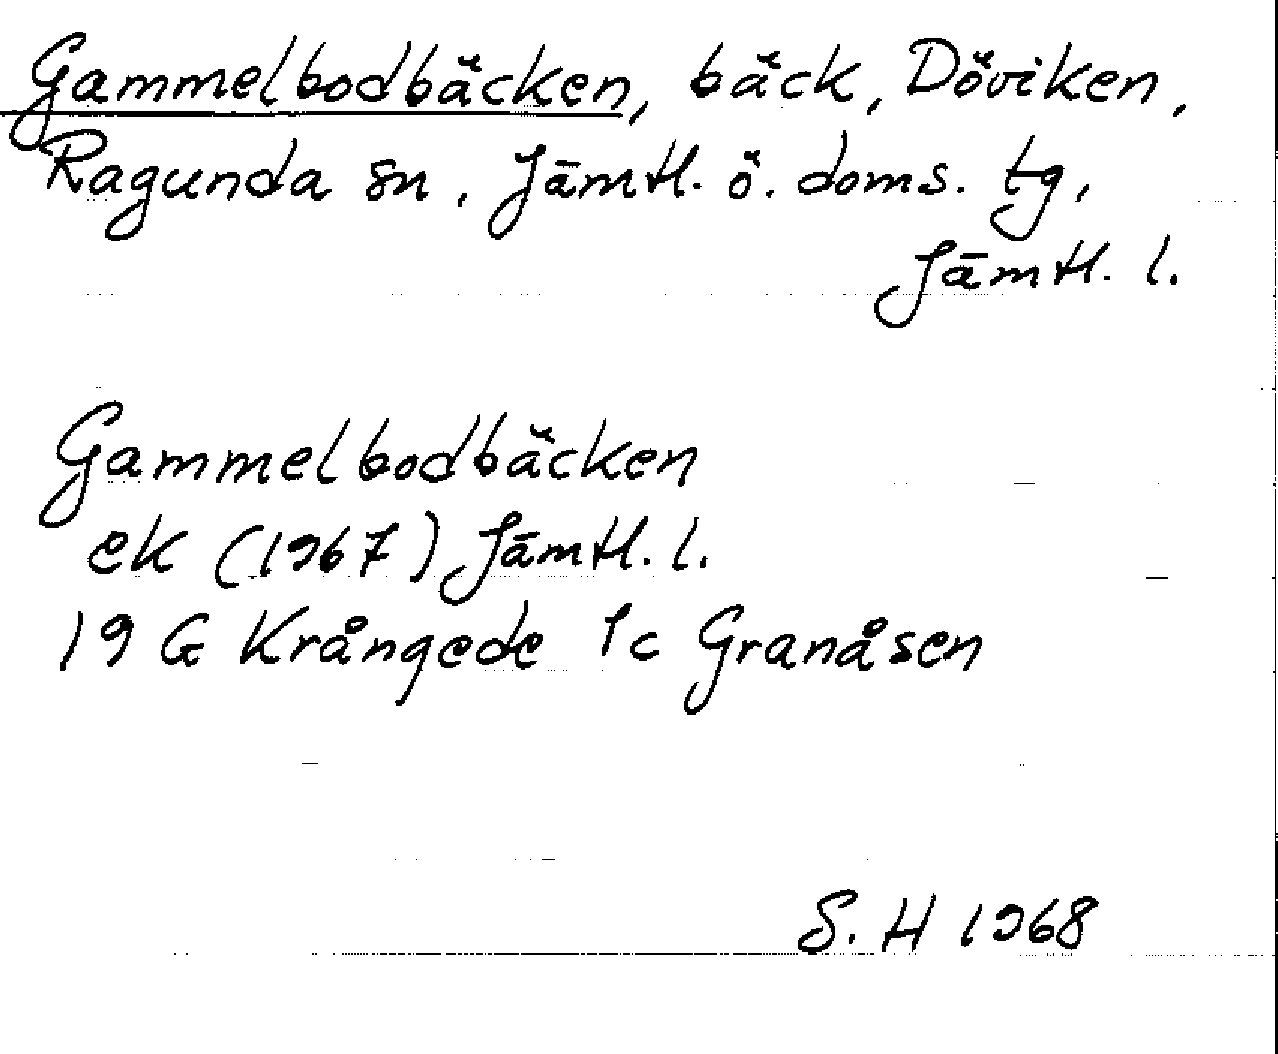 Gammelbodbäcken, bäck, Döviken,
Ragunda sn, Jämtl. ö. doms. tg,
Jämtl. l.
Gammelbodbäcken
ek (1967) Jämtl. l.
19 G Krångede 1c Granåsen
S. H 1968